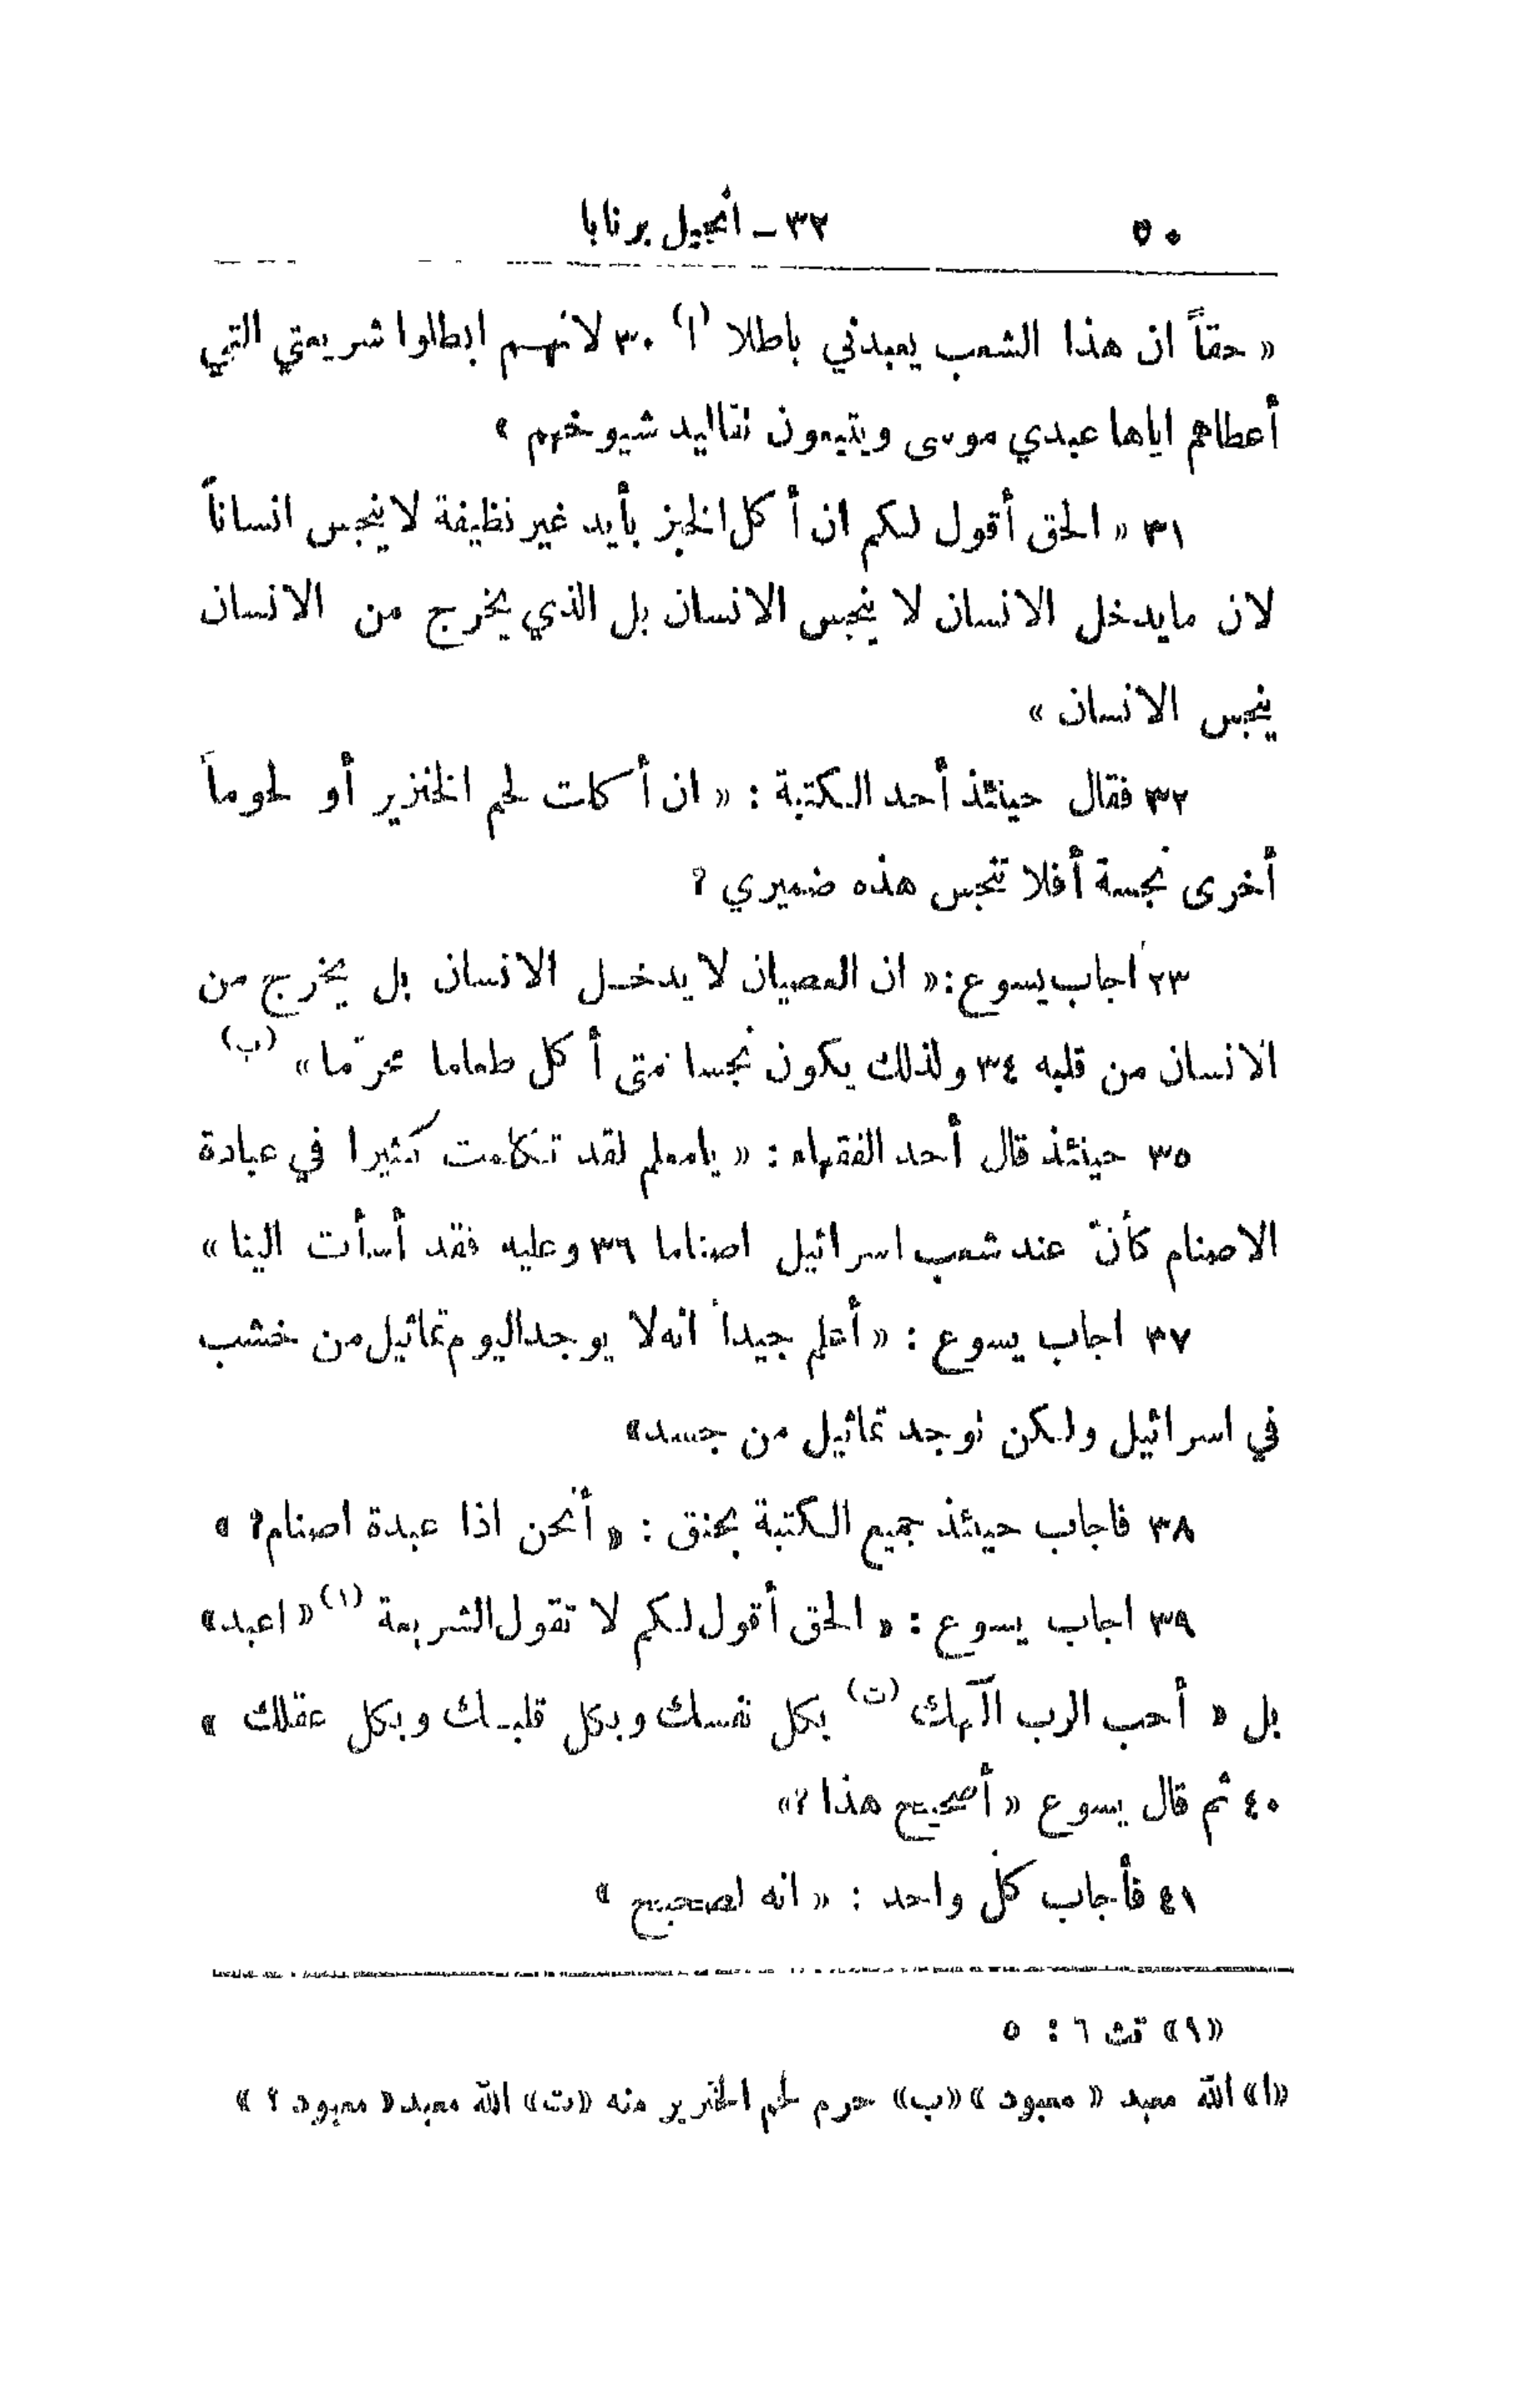 ٥٠
٣٢ – انجيل برنابا
« حقاً ان هذا الشعب يعبدني باطلا (ا) ٣٠ لانهم ابطلوا شريعتي التي
أعطاهم اياها عبدي موسى ويتبعون تقاليد شيوخهم »
٣١ « الحق أقول لكم ان أكل الخبز بأيد غير نظيفة لا ينجس انساناً
لان مايدخل الانسان لا ينجس الانسان بل الذي يخرج من الانسان
ينجس الانسان »
٣٢ فقال حينئذ أحد الكتبة : « ان أكلت لحم الخنزير أو لحوماً
أخرى نجسة أفلا تنجس هذه ضميري ؟
٢٣ اجاب يسوع : « ان العصيان لا يدخل الانسان بل يخرج من
الانسان من قلبه ٣٤ ولذلك يكون نجسا متى أكل طعاما محرّما » (ب)
٣٥ حينئذ قال أحد الفقهاء : « يامعلم لقد تكلمت كثيرا في عبادة
الاصنام كأنّ عند شعب اسرائيل اصناما ٣٦ وعليه فقد أسأت الينا »
٣٧ اجاب يسوع : « أعلم جيداً انه لا يوجد اليوم تماثيل من خشب
في اسرائيل ولكن توجد تماثيل من جسد»
٣٨ فاجاب حينئذ جميع الكتبة بحنق : « أنحن اذا عبدة اصنام؟ »
٣٩ اجاب يسوع : « الحق أقول لكم لا تقول الشريعة (١) « اعبد»
بل « أحب الرب آلهك (ت) بكل نفسك وبكل قلبك وبكل عقلك »
٤٠ ثم قال يسوع « أصحيح هذا ؟»
٤١ فأجاب كل واحد : « انه لصحيح »
«١» تث ٦ : ٥
«ا» الله معبد « معبود » «ب» حرم لحم الخنزير منه «ت» الله معبد « معبود ؟ »